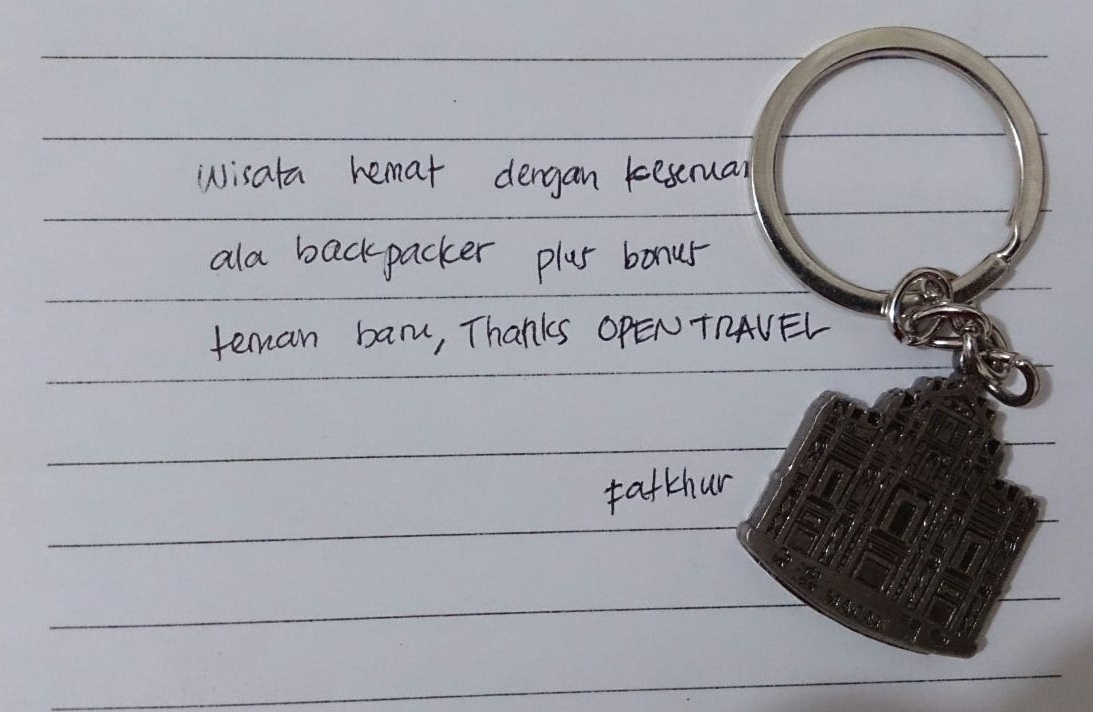 Wisata hemat dengan keseruan
ala backpacker plus bonus
teman baru, Thanks OPEN TRAVEL
Fatkhur
MACAU